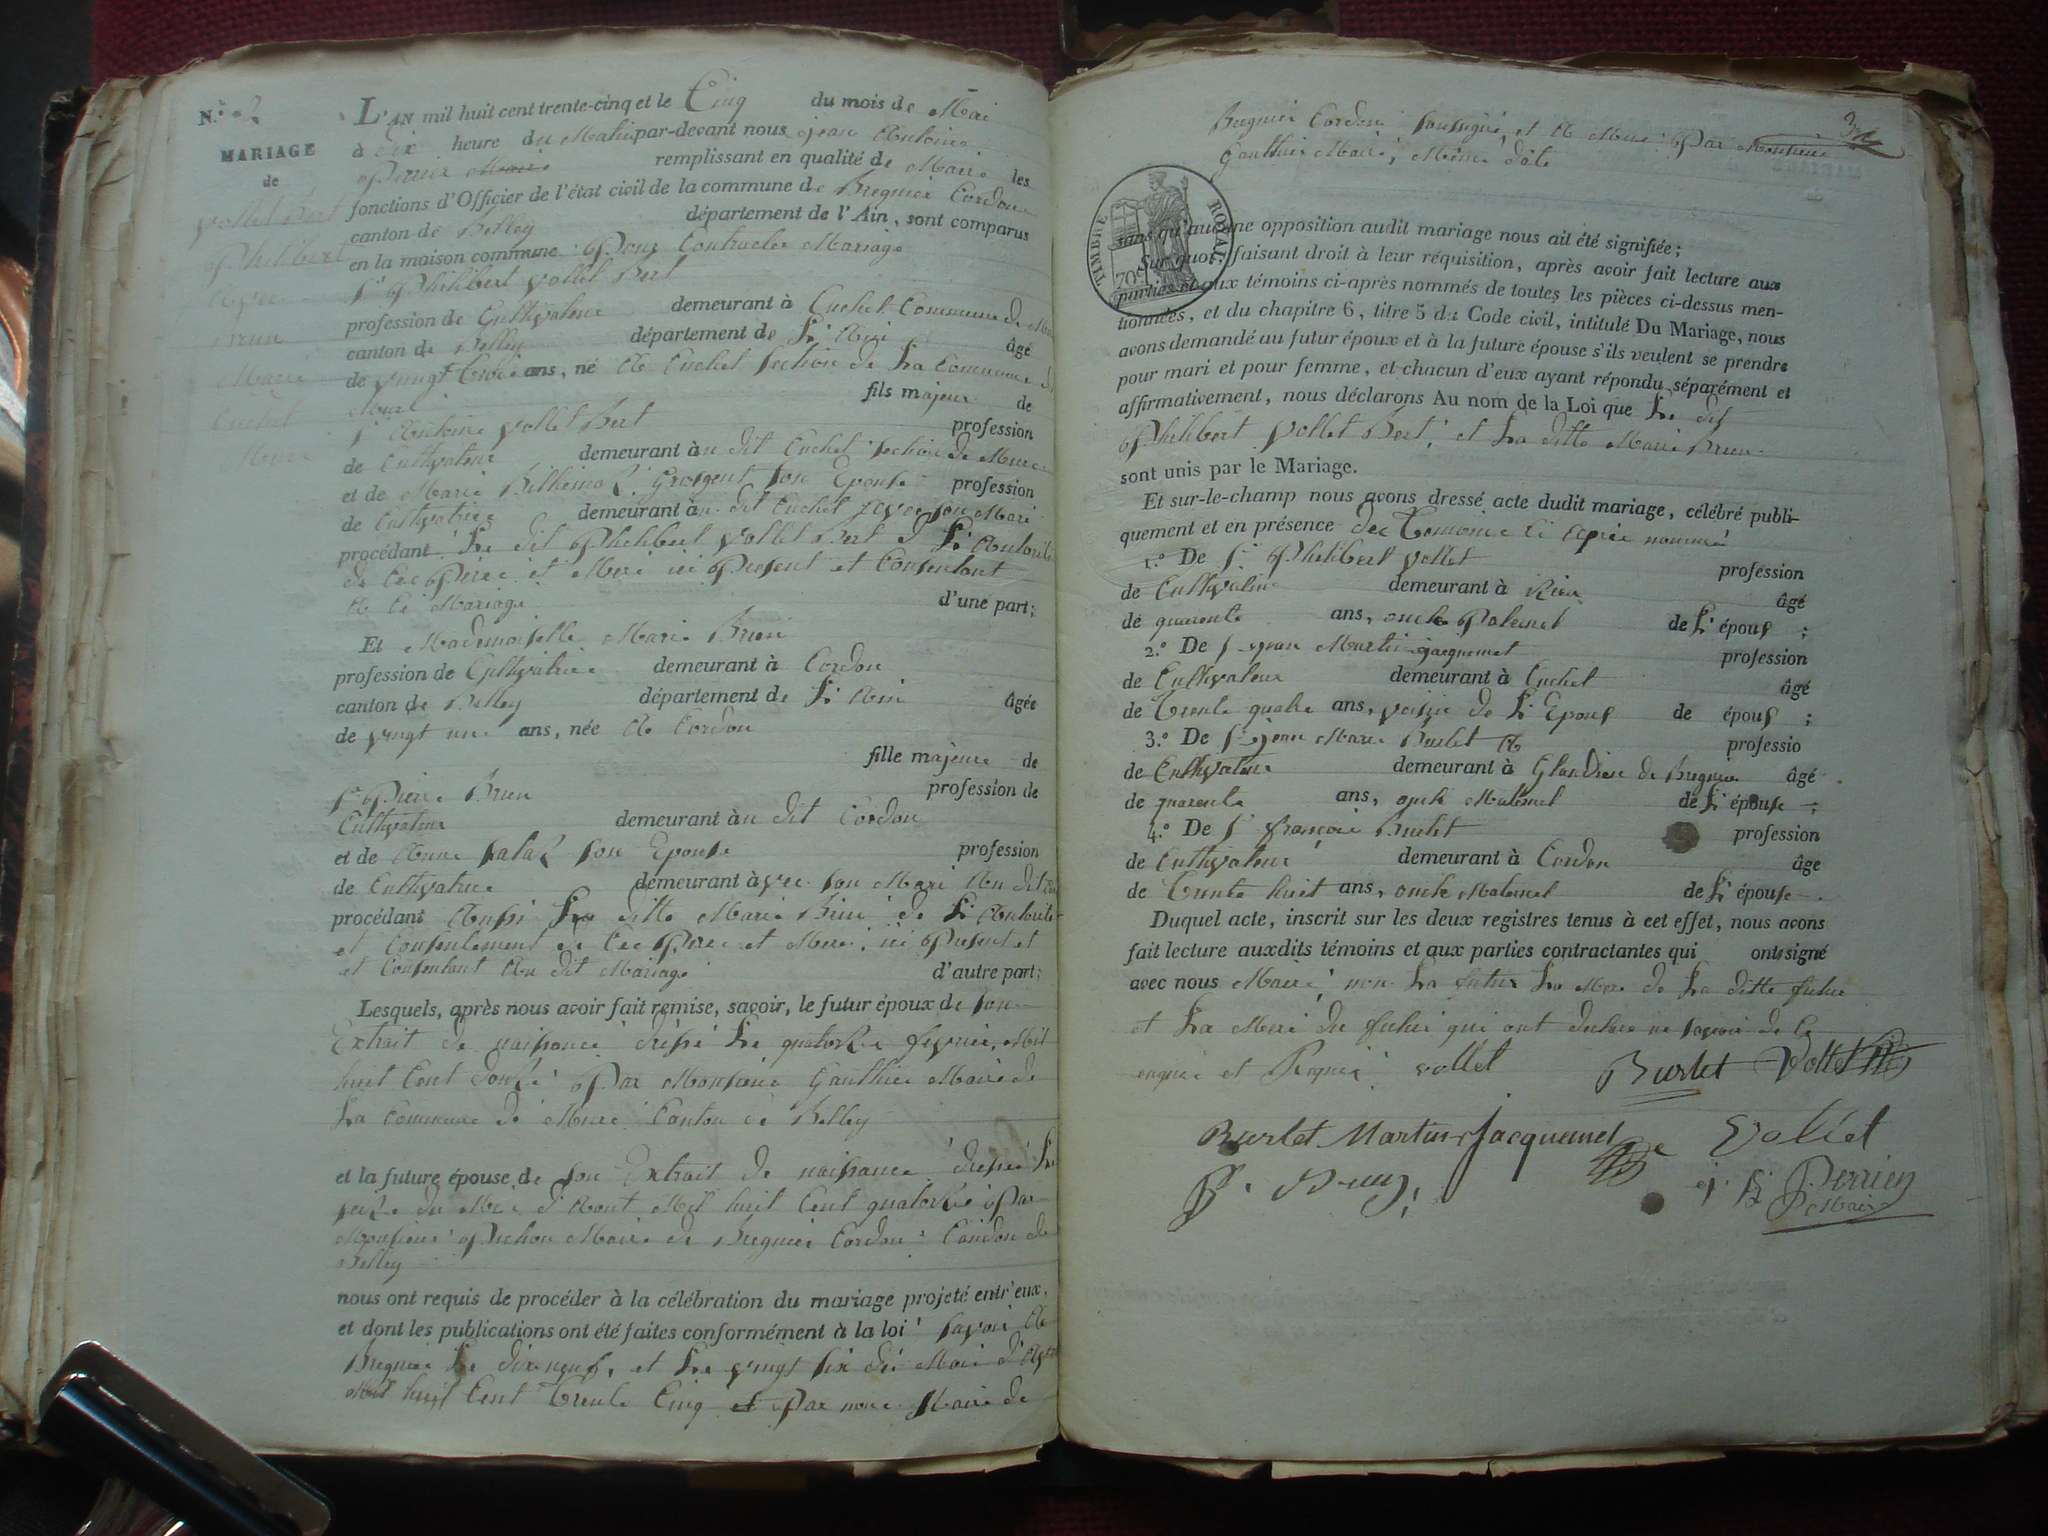 N.º 2
MARIAGE
de
Vollet Bert
Philibert
avec
Brun
Marie
Cuchet
Mure
L'AN mil huit cent trente-cinq et le Cinq du mois de Mai
à dix heure du Matin par-devant nous jean Antoine
Perrier Maire remplissant en qualité de Maire les
fonctions d'Officier de l'état civil de la commune de Bregnier Cordon
canton de Belley département de l'Ain, sont comparus
en la maison commune Pour Contracter Mariage
Sr Philibert Vollet Bert
profession de Cultivateur demeurant à Cuchet Commune de
canton de Belley département de Li Ain âgé
de vingt trois ans, né A Cuchet section de La Commune de
Mure fils majeur de
Sr Antoine Vollet Bert profession
de Cultivateur demeurant àu dit Cuchet section de Mure
et de Marie son Epouse profession
de Cultivatrice demeurant àu dit Cuchet avec son Mari
procédant Le dit Philibert Vollet Bert d Li Autorité
de Ces Perre et Mere ici Present et Consentant
A Ce Mariage d'une part;
Et Mademoiselle Marie Brun
profession de Cultivatrice demeurant à Cordon
canton de Belley département de Li Ain âgée
de vingt une ans, née A Cordon
fille majeure de
Sr Pierre Brun profession de
Cultivateur demeurant àu dit Cordon
et de Anne son Epouse profession
de Cultivatrice demeurant àvec son Mari Au dit
procédant Aussi La ditte Marie Brun de Li Autorité
et Consentement de Ces Perre et Mere, ici Present et
et Consentant Au dit Mariage d'autre part;
Lesquels, après nous avoir fait remise, savoir, le futur époux de son
Extrait de naissance dressé Le quatorze fevrier Mil
huit Cent douze Par Monsieur Gauthier Maire de
La Commune de Mure Canton de Belley
et la future épouse de son Extrait de naissance dressé Le
seize du Moi d'Aout Mil huit Cent quatorze Par
Monsieur Pichon Maire de Bregnier Cordon Candon de
Belley
nous ont requis de procéder à la célébration du mariage projeté entr'eux,
et dont les publications ont été faites conformément à la loi savoir A
Bregnier Le dix neuf, et Le vingt six du Moi d'
Mil huit Cent Trente Cinq et Par nous Maire de
Bregnier Cordon soussigné, et A Mure Par Monsieur
Gauthier Maire, Même date
TIMBRE ROYAL
70
sans qu'aucune opposition audit mariage nous ait été signifiée;
Sur quoi, faisant droit à leur réquisition, après avoir fait lecture aux
parties et aux témoins ci-après nommés de toutes les pièces ci-dessus men-
tionnées, et du chapitre 6, titre 5 du Code civil, intitulé Du Mariage, nous
avons demandé au futur époux et à la future épouse s'ils veulent se prendre
pour mari et pour femme, et chacun d'eux ayant répondu séparément et
affirmativement, nous déclarons Au nom de la Loi que Le dit
Philibert Vollet Bert, et La ditte Marie Brun
sont unis par le Mariage.
Et sur-le-champ nous avons dressé acte dudit mariage, célébré publi-
quement et en présence des Temoins Ci Après nommé
1.º De Sr Philibert Vollet profession
de Cultivateur demeurant à âgé
de quarente ans, oncle Paternel de Li épous ;
2.º De S jean Martin jacquemet profession
de Cultivateur demeurant à Cuchet âgé
de Trente quatre ans, voisin de Li Epous de épous ;
3.º De Sr jean Marie Burlet A professio
de Cultivateur demeurant à Glandieu de Bregnier âgé
de quarente ans, oncle Maternel de Li épouse ;
4.º De Sr françois Burlet profession
de Cultivateur demeurant à Cordon âgé
de Trente huit ans, oncle Maternel de Li épouse .
Duquel acte, inscrit sur les deux registres tenus à cet effet, nous avons
fait lecture auxdits témoins et aux parties contractantes qui ont signé
avec nous Maire, non La futur La Mere de La ditte future
et La Mere du futur qui ont declare ne savoir de Ce
enquis et Requis vollet Burlet Vollet
Burlet Martin Jacquemet Vollet
P. Brun j. A Perrier
Maire